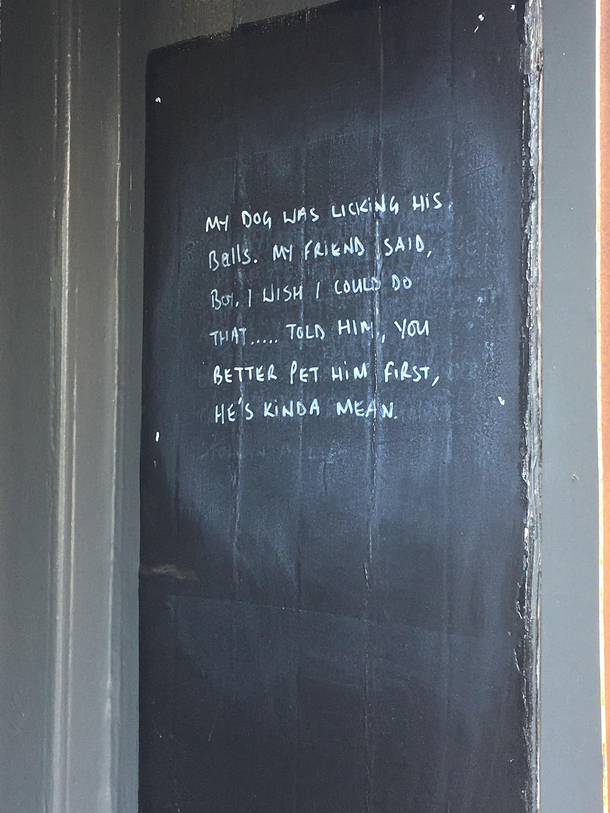 MY DOG WAS LICKING HIS
Balls. MY FRIEND SAID,
Boy, I WISH I COULD DO
THAT..... TOLD HIM, YOU
BETTER PET HIM FIRST,
HE'S KINDA MEAN.